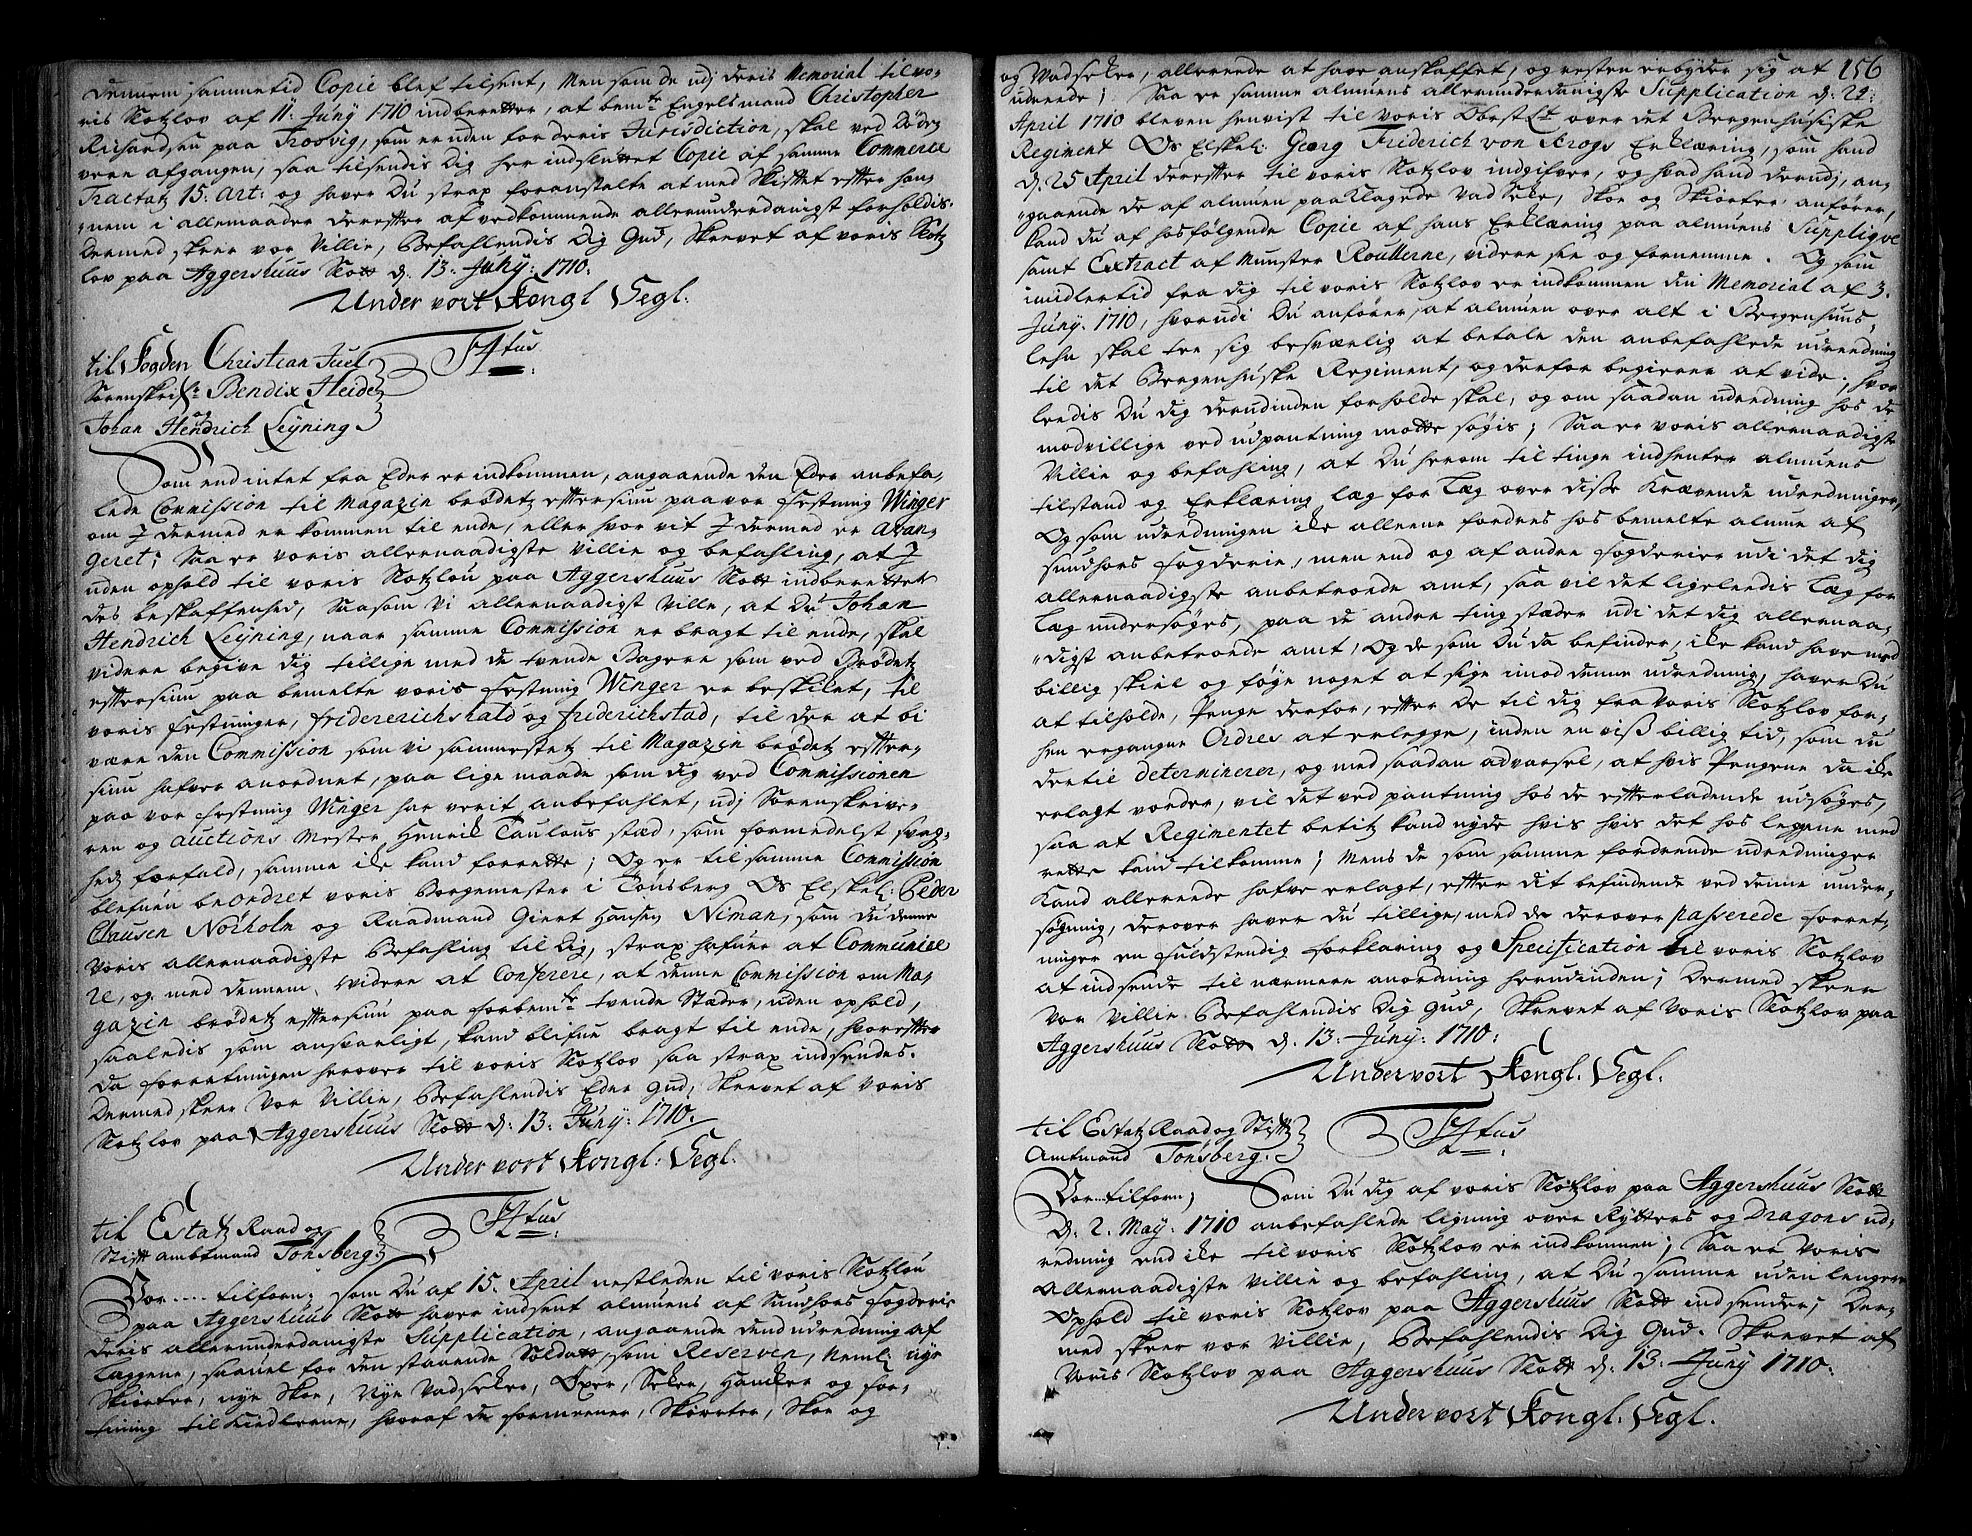 dennem sammetid Copie blef tilsent, Men som de udj deris Memorial til vo-
ris Slotzlov af 11: Juny 1710 indberetter, at bem.te Engelsmand Christopher
Richardsen paa Trosvig, som er uden for deris Jurisdiction, skal ved Døden
være afgangen, saa tilsendis Dig her indsluttet Copie af samme Commerce
Tractatz 15. Art: og haver Du strax foranstalte at med Skiftet efter han,
nem i allemaader derefter af vedkommende allerunderdanigst forholdis.
Dermed skeer vor Villie, Befahlendis Dig Gud, Skrevet af voris Slotz
lov paa Aggershuus Slott d. 13. Juny. 1710.
Under vort Kongl Segl.
til Fogden Christian Juel
Sorenskrif.r Bendix Heide
og
Johan Hendrich Leÿning
F 4tus
Som end intet fra Eder er indkommen, angaaende den Eder anbefa-
lede Commission til Magazin brødetz eftersiun paa vor Festning Winger
om J dermed er kommen til ende, eller hvor vit J dermed er avan-
geret; Saa er voris allernaadigste Villie og befahling, at J
uden ophold til voris Slotzlou paa Aggershuus Slott indberetter
des beskaffenhed, Saasom Vi allernaadigst Ville, at Du Johan
Hendrich Leÿning, naar samme Commission er bragt til ende, skal
videre begive dig tillige med de tvende Bagere som ved Brødetz
eftersiun paa bemelte voris Festning Winger er beskiket, til
voris festninger, fridererichshald og friderichstad, til der at bi
være den Commission som vi sammestetz til Magazin brødetz efter-
siun hafver anordnet, paa lige maade som dig ved Commissionen
paa vor Festning Winger har verit anbefahlet, udj Sorenskrive-
ren og auctions Mester Henrik Taulous stæd, som formedelst svag-
hedz forfald, samme ike kand forrette; Og er til samme Commission
blefuen beordret voris Borgemester i Tönsberg Os Elskel: Peder
Clausen Nörholm og Raadmand Giert Hansen Niman, som Du denne
Voris allernaadigste Befahling til Dig, strax hafuer at Communice
re, og med dennem videre at Conferere, at denne Commission om Ma-
gazin brødetz eftersiun paa forbem.te tvende Stæder, uden ophold,
saaledis som ansvarligt, kand blifue bragt til ende, hvorefter
Da forretningen herover til voris Slotzlov saa strax indsendes.
Dermed skeer vor Villie, Befahlendis Eder Gud; Skrevet af Voris
Slotzlov paa Aggershuus Slott d. 13. Juny. 1710.
Under vort Kongl: Segl.
til Estatz Raad og
Stift ambtmand Tonsberg
F 4tus
Vor ... tilforn; som Du af 15. April nestleden til voris Slotzlou
paa Aggershuus Slott haver indsent almuens af Sundhors Fogderie
deris allerunderdanigste Supplication, angaaende dend udredning af
Læggene, saavel for den staaende Soldatt, som Reserven, Neml: nye
Skiorter, nye Skoe, Nye Vadseker, Oxer, Seker, Hancker og for-
tining til Kiedlerne, hvoraf de formeener, Skiorter, Skoe og
156
og Vadseker, allerede at have anskaffet, og resten erbyder sig at
udreede; Saa er samme almuens allerunderdanigste Supplication d. 22:
April 1710 bleven henvist til voris Obrist Lt over det Bergenhusiske
Regiment Os Elskel: Georg Friderich von Krogs Erklæring, som hand
d. 25 April derefter til voris Slotzlov indgifver, og hvad hand derudj, ang
gaaende de af almuen paaklagede Vadseke, Skoe og Skiorter anfører,
kand Du af hosfølgende Copie af hans Erklæring paa almuens Suppliqve
samt Extract af Munster Roullerne, videre see og fornemme. Og som
imidlertid fra dig til voris Slotzlov er indkommen din Memorial af 3.
Juny. 1710, hvorudi Du anfører, at almuen over alt i Bergenhuus,
lehn skal tee sig besværlig at betale den anbefahlede udreedning
til det Bergenhuske Regiment, og derfor begierer at vide, hvor
ledis Du dig derudinden forholde skal, og om saadan udredning hos de
modvillige ved udpantning motte søgis; Saa er voris allernaadigste
Villie og befahling, at Du herom til tinge indhenter almuens
tilstand og Erklæring læg for Læg over disse Krævende udredninger,
Og som udredningen ike alleene fordres hos bemelte almue af
Sundhors Fogderie, men end og af andre Fogderier udi det dig
allernaadigste anbetroede amt, saa vil det ligeledis Læg for
Læg undersøges, paa de andre tingstæder udi det dig allernaa-
digst anbetroede amt, Og de som Du da befinder, ike kand have med
billig skiel og føye noget at sige imod denne udredning, haver Du
at tilholde, Penge derfor, efter de til dig fra voris Slotzlov for-
hen ergangne Ordres at erlegge, inden en viss billig tid, som du
dertil determinerer, og med saadan advarsel, at hvis Pengene da ike
erlagt vorder, vil det ved pantning hos de efterladende udsøges,
saa at Regimentet betitz kand nyde hvis hvis det hos leggene med
rette kand tilkomme; Mens de som samme fordrende udredninger
Kand allereede hafve erlagt, efter dit befindende ved denne under-
søgning, derover haver du tillige, med de derover passerede forret-
ninger en fuldstendig forklaring og Specification til voris Slotzlov
at indsende til nærmere anordning herudinden; Dermed skeer
vor Villie Befahlendis Dig Gud, Skrevet af Voris Slotzlov paa
Aggershuus Slott d. 13. Juny. 1710:
Under vort Kongl. Segl.
til Estatz Raad og Stiftz
Amtmand Tonsberg.
F 4tus
Vor ... tilforn; Som Du dig af voris Slotzlov paa Aggershuus Slott
d. 2. May. 1710 anbefahlede ligning over Rytters og Dragons ud-
redning end ike til voris Slotzlov er indkommen; Saa er Voris
Allernaadigste Villie og befahling, at Du samme uden lengere
Ophold til voris Slotzlov paa Aggershuus Slott indsender; Der-
med skeer vor Villie, Befahlendis Dig Gud. Skrevet af
Voris Slotzlov paa Aggershuus Slott d: 13. Juny 1710:
Under vort Kongl. Segl.